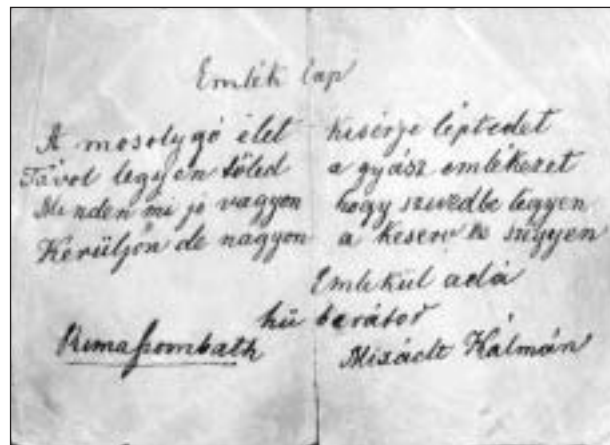 Emlék lap
A mosolygó élet kisérje léptedet
Távol legyen tőled a gyász emlékezet
Minden mi jó vagyon hogy szivedbe legyen
Kerüljön de nagyon a keserv szégyen
Emlekül adá
hű barátod
Rimaszombath Kálmán